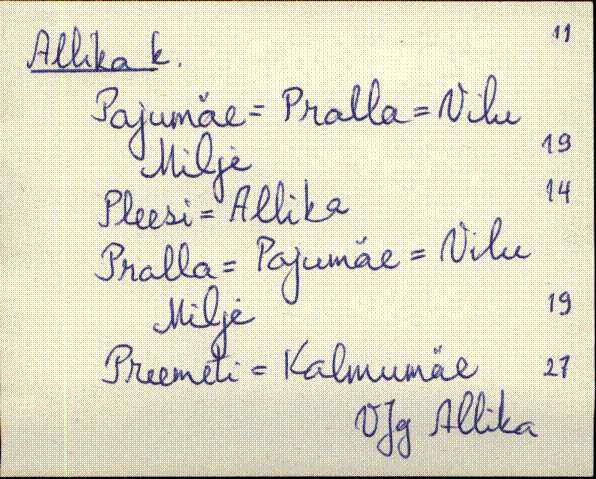 11
Allika k.
Pajumäe = Pralla = Vilu
Milje 19
Pleesi = Allika 14
Pralla = Pajumäe = Vilu
Milje 19
Preemeti = Kalmumäe 27
VJg Allika